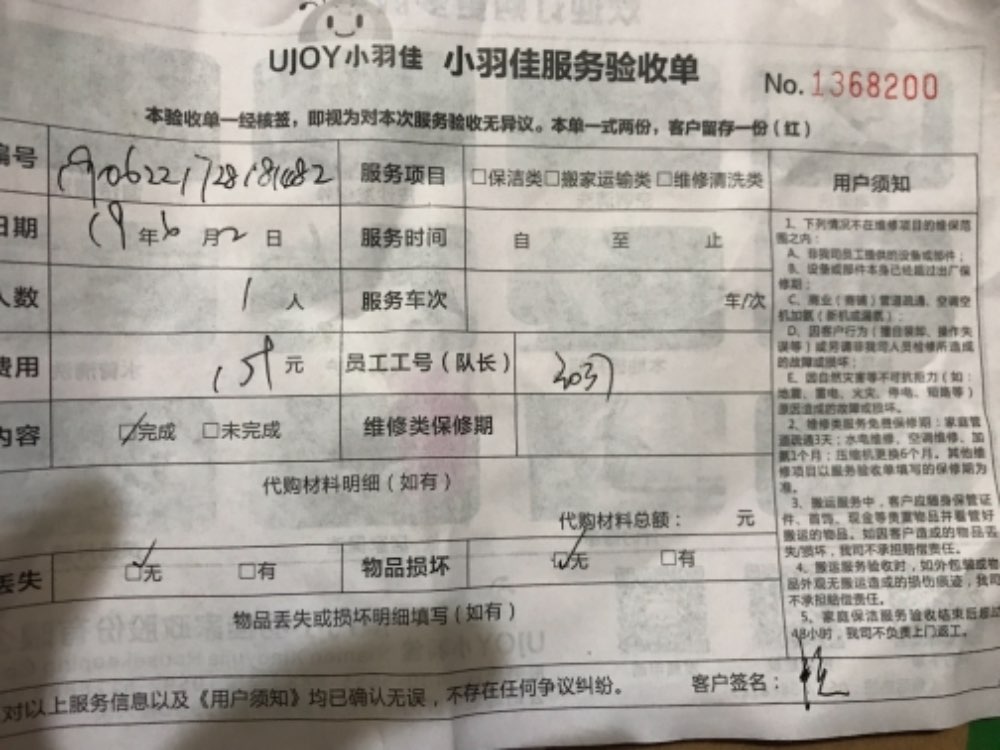 UJOY小羽佳 小羽佳服务验收单 No.1368200
本验收单一经核签，即视为对本次服务验收无异议。本单一式两份，客户留存一份（红）
编号 服务项目 □保洁类□搬家运输类□维修清洗类 用户须知
日期 19年6月2日 服务时间 自 至 止
人数 1人 服务车次 车/次
费用 元 员工工号（队长）
内容 □完成 □未完成 维修类保修期
代购材料明细（如有）
代购材料总额： 元
丢失 □无 □有 物品损坏 □无 □有
物品丢失或损坏明细填写（如有）
对以上服务信息以及《用户须知》均已确认无误，不存在任何争议纠纷。 客户签名：
1、下列情况不在维修项目的维保范
围之内：
A、非我司员工提供的设备或部件；
B、设备或部件本身已经超过出厂保
修期；
C、商业（商铺）管道疏通、空调空
机加氟（新机或漏氟）；
D、因客户行为（擅自装卸、操作失
误等）或另请非我司人员检修所造成
的故障或损坏；
E、因自然灾害等不可抗拒力（如：
地震、雷电、火灾、停电、短路等）
原因造成的故障或损坏。
2、维修类服务免费保修期：家庭管
道疏通3天；水电维修、空调维修、加
氟1个月；压缩机更换6个月。其他维
修项目以服务验收单填写的保修期为
准。
3、搬运服务中，客户应随身保管证
件、首饰、现金等贵重物品并看管好
搬运的物品。如因客户造成的物品丢
失/损坏，我司不承担赔偿责任。
4、搬运服务验收时，如外包装或物
品外观无搬运造成的损伤痕迹，我司
不承担赔偿责任。
5、家庭保洁服务验收结束后超过
48小时，我司不负责上门返工。